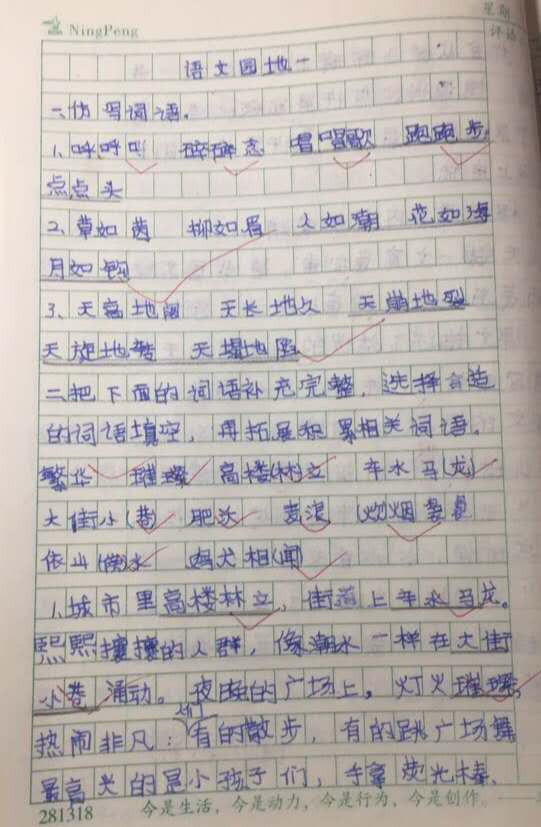 星期
NingPeng
评语
语文园地一
一、仿写词语。
1、呼呼叫 碎碎念 唱唱歌 跑跑步
点点头
2、草如茵 柳如眉 人如潮 花如海
月如钩
3、天高地阔 天长地久 天崩地裂
天旋地转 天塌地陷
二把下面的词语补充完整,选择合适
的词语填空,再拓展积累相关词语。
繁华 璀璨 高楼(林)立 车水马(龙)
大街小(巷) 肥沃 麦浪 炊烟袅袅
依山(傍)水 鸡犬相(闻)
1、城市里高楼林立,街道上车水马龙。
熙熙攘攘的人群,像潮水一样在大街
小巷涌动。夜晚的广场上,灯火璀璨,
热闹非凡:人们有的散步,有的跳广场舞
最高兴的是小孩子们,手拿荧光棒、
281318 今是生活,今是动力,今是行为,今是创作。